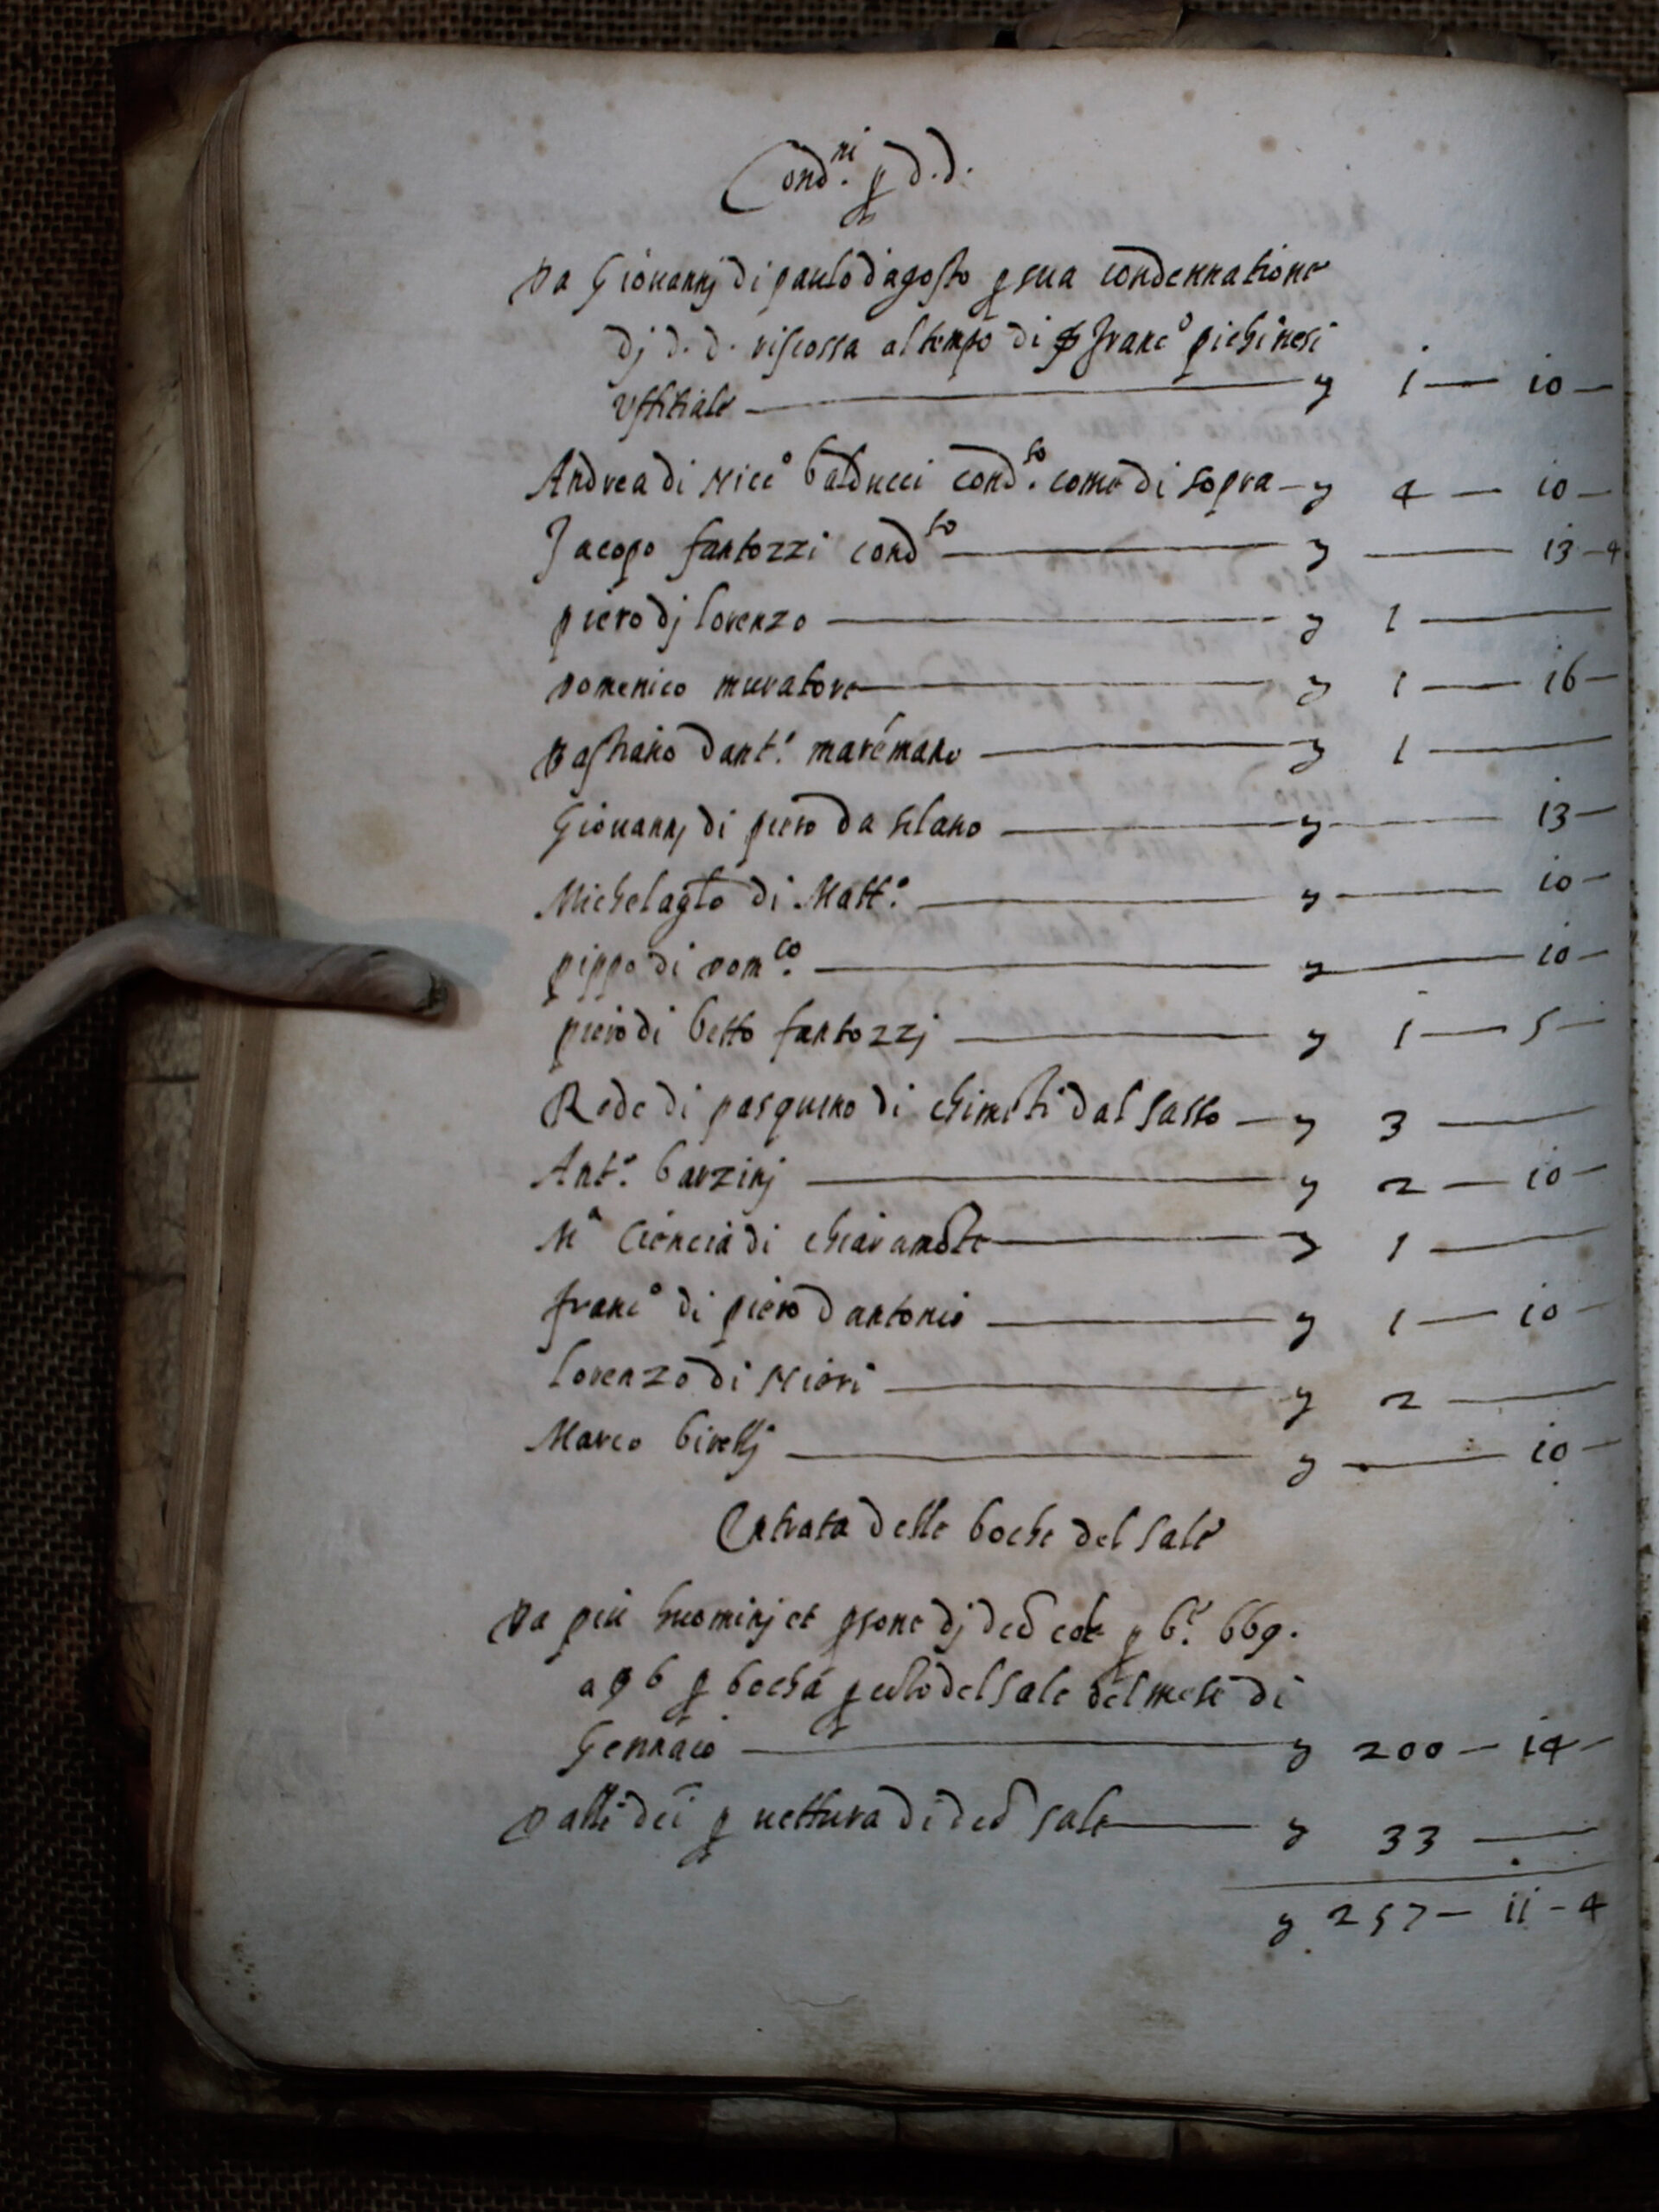 Cond.ni p d.d.
Da Giouannj di paulo dagosto p sua condennatione
dj d. d. riscossa al tempo di franc.o pichinesi
Vffitiale — y 1 — 10 —
Andrea di Nicc.o balducci cond.to come di sopra — y 4 — 10 —
Jacopo fantozzi cond.to — y — 13 — 4
piero dj lorenzo — y 1 —
Domenico muratore — y 1 — 16 —
Bastiano dant.o maremano — y 1 —
Giouannj di piero da silano — y — 13 —
Michelaglo di Matt.o — y — 10 —
pippo di Dom.co — y — 10 —
piero di betto fantozzj — y 1 — 5 —
Rede di pasquino di chimeti dal sasso — y 3 —
Ant.o barzinj — y 2 — 10 —
M.a Ciencia di chiaramote — y 1 —
franc.o di piero dantonio — y 1 — 10 —
lorenzo di Nieri — y 2 —
Marco birellj — y — 10 —
Entrata delle boche del sale
Da piu huominj et psone dj p b.e 669.
a 6 p bocha p culo del sale del mese di
Gennaio — y 200 — 14 —
Dalli dci p uettura di sale — y 33 —
y 257 — 11 — 4